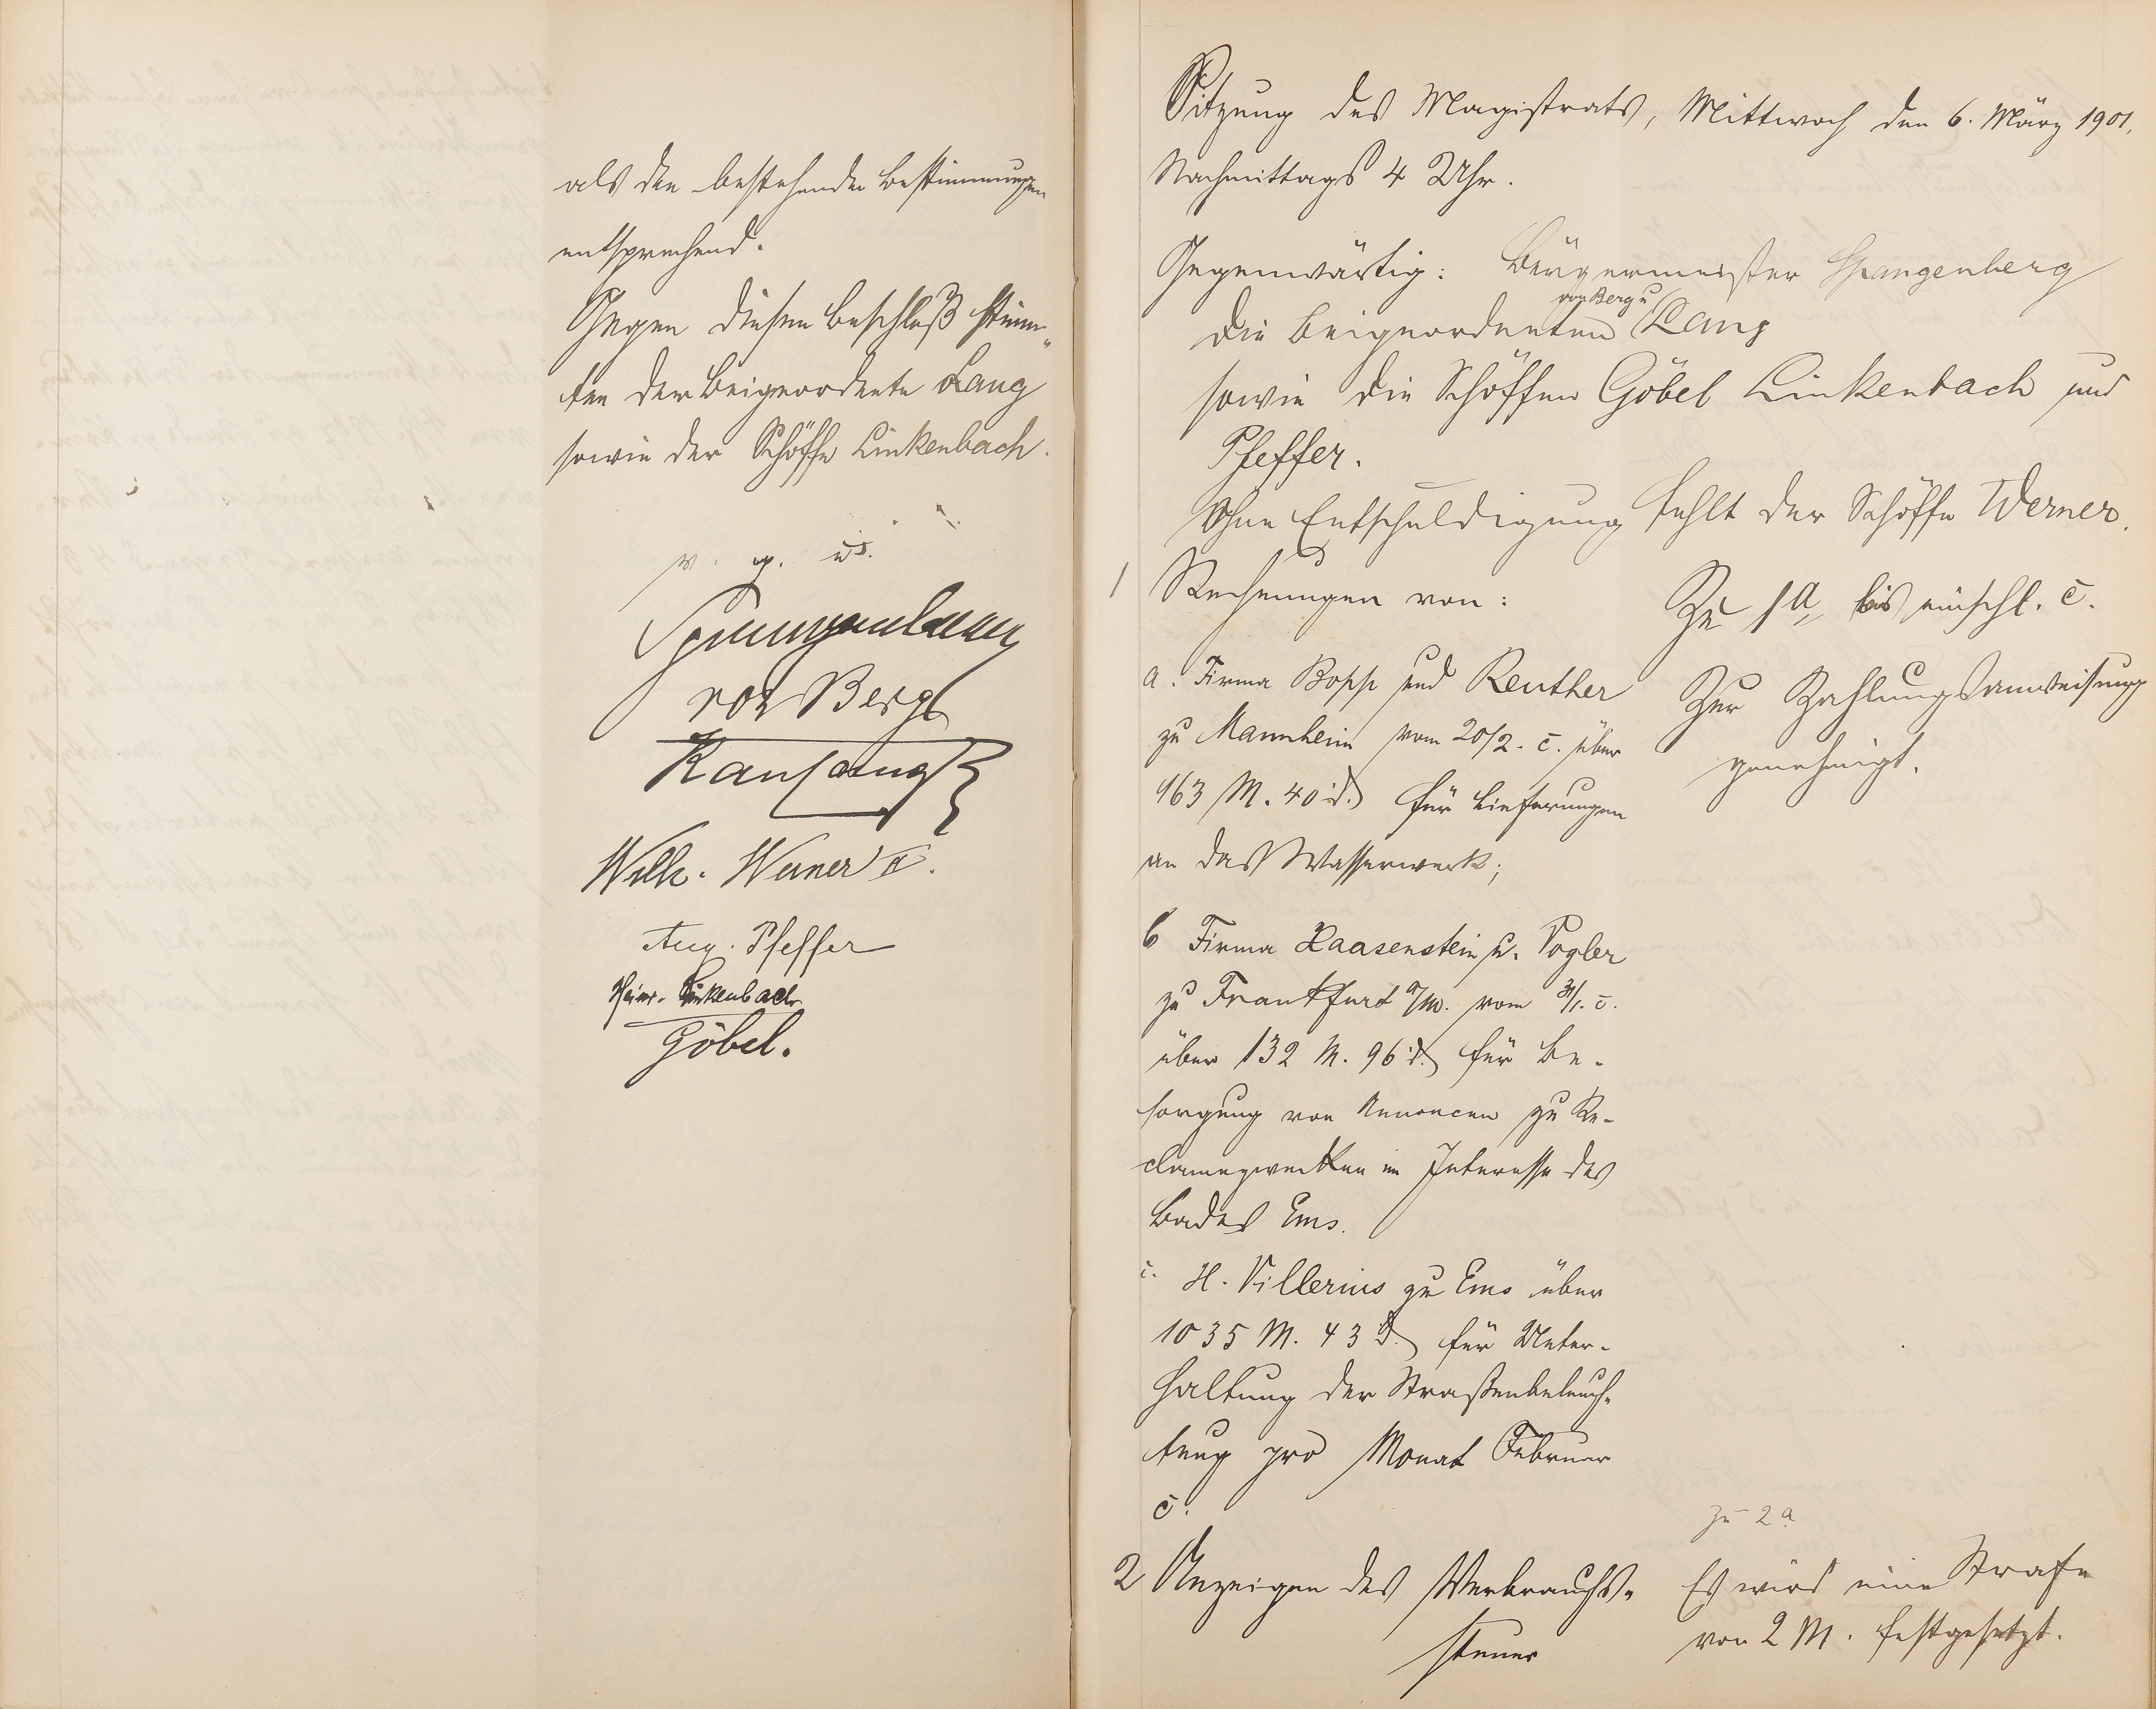 als den bestehenden Bestimmungen
entsprechend.
Gegen diesen Beschluß stimm„
ten der Beigeordnete Lang
sowie der Schöffe Linkenbach.
v. g. u.
Spangenberg
von Berg
Karl Lang
Wilh. Werner II.
Aug. Pfeffer
Heinr. Linkenbach
Göbel.
Sitzung des Magistrats, Mittwoch den 6. März 1901,
Nachmittags 4 Uhr.
Gegenwärtig: Bürgermeister Spangenberg
von Berg u
die Beigeordneten Lang
sowie die Schöffen Göbel Linkenbach und
Pfeffer.
Ohne Entschuldigung fehlt der Schöffe Werner.
1 Rechnungen von:
a. Firma Bopp und Reuther
zu Mannheim vom 20/2. c. über
163 M. 40 d. für Lieferungen
an das Wasserwerk;
b Firma Haasenstein u. Vogler
zu Frankfurt a/M. vom 31/1. c.
über 132 M. 96 d. für Be-
sorgung von Annoncen zu Re-
clamezwecken im Interesse des
Bades Ems.
c. H. Villerius zu Ems über
1035 M. 43 d. für Unter-
haltung der Straßenbeleuch-
tung pro Monat Februar
c.
Zu 1a, bis einschl. c.
Zur Zahlungsanweisung
genehmigt.
2 Anzeigen des Verbrauchs-
steuer
zu 2a
Es wird eine Strafe
von 2 M. festgesetzt.